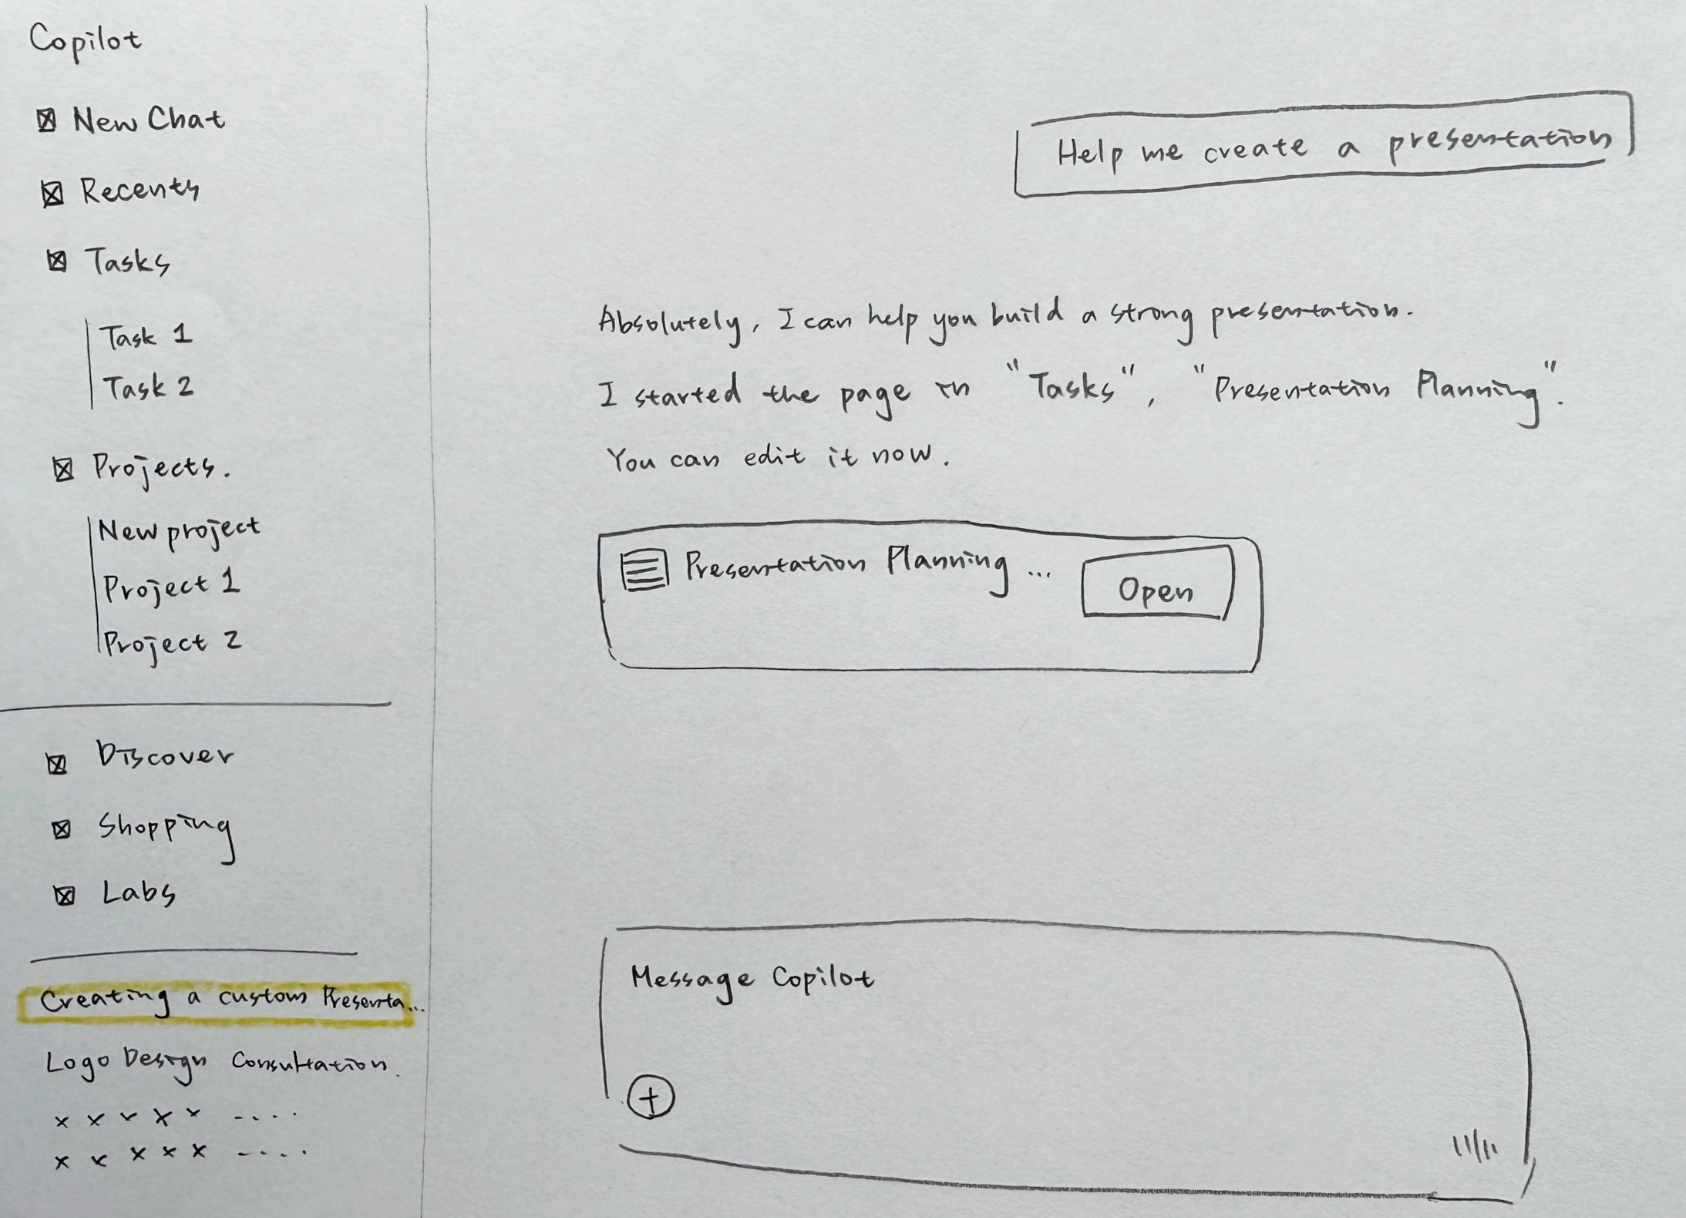 Copilot
New Chat
Recents
Tasks
Task 1
Task 2
Projects.
New project
Project 1
Project 2
Discover
Shopping
Labs
Creating a custom Presenta...
Logo Design Consultation.
x x x x x - . . .
x x x x x - - . .
Help me create a presentation
Absolutely, I can help you build a strong presentation.
I started the page in "Tasks", "Presentation Planning".
You can edit it now.
Presentation Planning ...
Open
Message Copilot
+